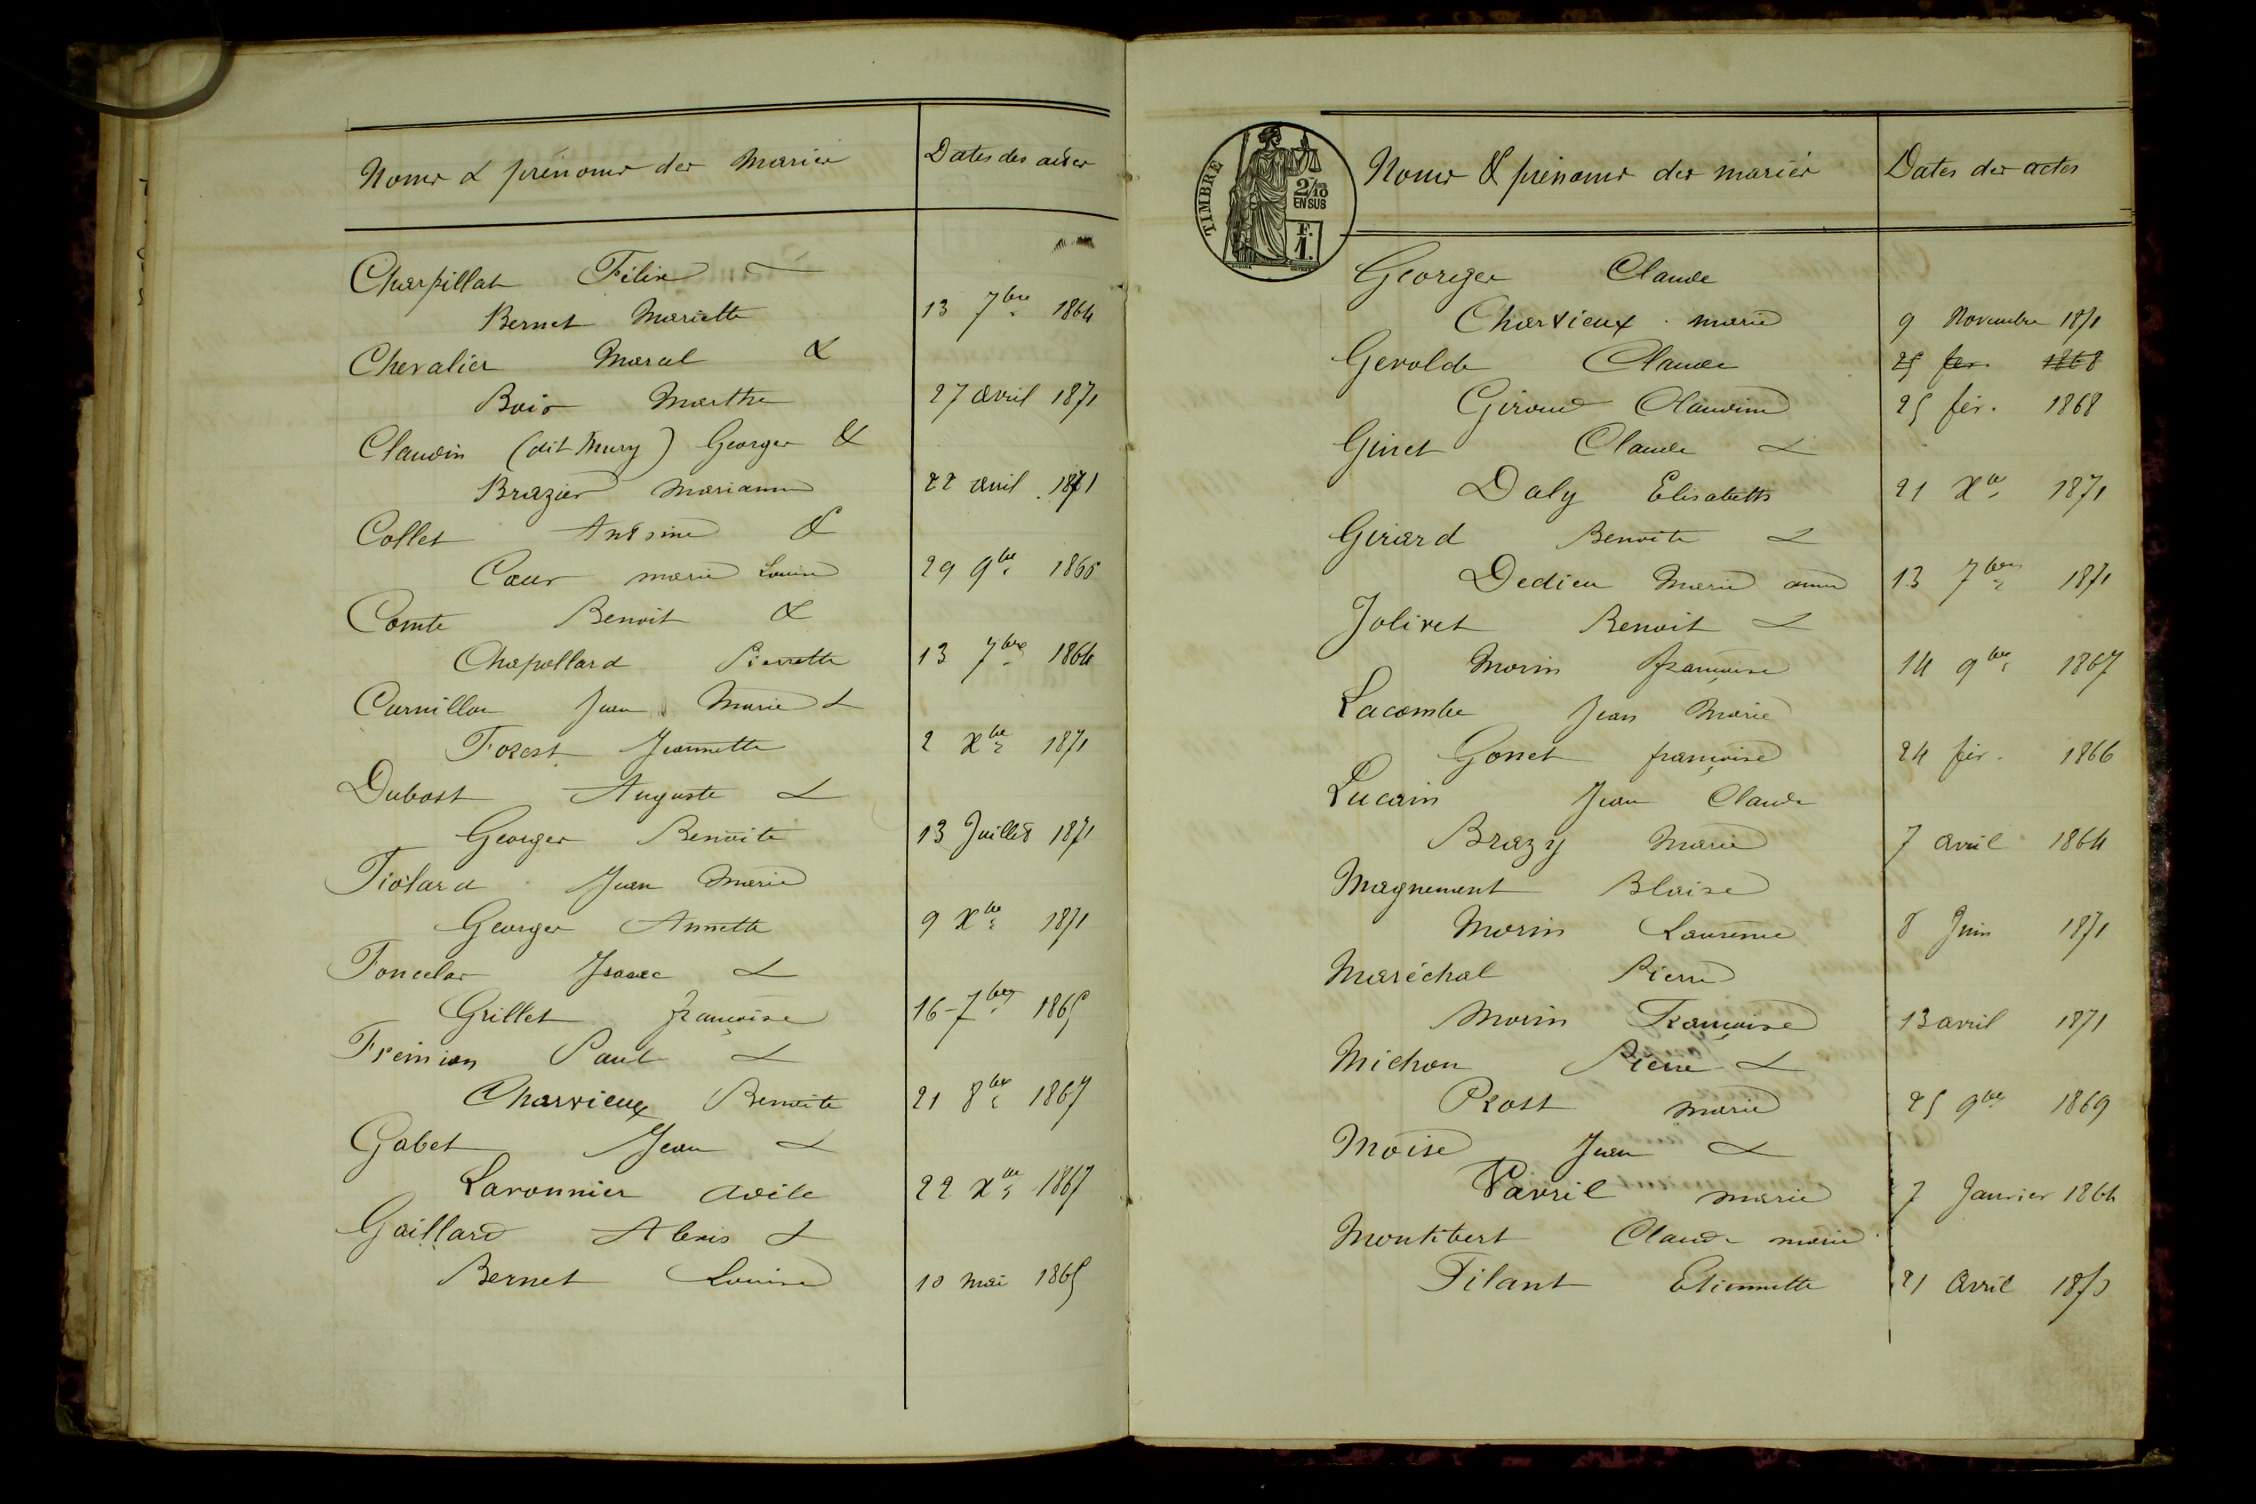 Noms & prénoms des Mariés
Dates des actes
Charpillat Félix
Bernet Mariette 13 7bre 1864
Chevalier Maral &
Bois Marthe 27 avril 1871
Claudin (dit Mury) Georges &
Brazier Marianne 22 avril 1871
Collet Antoine &
Cœur marie Louise 29 9bre 1865
Comte Benoit &
Chapollard Pierrette 13 7bre 1864
Curnillon Jean Marie &
Forest Jeannette 2 Xbre 1871
Dubost Auguste &
Georges Benoite 13 Juillet 1871
Fiolard Jean Marie
Georges Annette 9 Xbre 1871
Foncelas Isaac &
Grillet françoise 16 7bre 1865
Frémion Paul &
Charvieux Benoite 21 8bre 1867
Gabet Jean &
Laronnier Avite 22 Xbre 1867
Gaillard Alexis &
Bernet Louise 10 mai 1865
TIMBRE
2/10
EN SUS
F.
1.
Noms & prénoms des mariés
Dates des actes
Georges Claude
Charvieux marie 9 Novembre 1871
Gerolde Claude 25 fev. 1868
Giroud Claudine 25 fév. 1868
Ginet Claude &
Daly Elisabeth 21 Xbre 1871
Girard Benoite &
Dedieu Marie anne 13 7bre 1871
Jolivet Benoit &
Morin françoise 14 9bre 1867
Lacombe Jean Marie
Gonet françoise 24 fév. 1866
Lucain Jean Claude
Brazy Marie 7 avril 1864
Magnement Blaise
Morin Laurence 8 Juin 1871
Maréchal Pierre
Morin Françoise 13 avril 1871
Michon Pierre &
Prost marie 25 9bre 1869
Moïse Jean &
Vavril marie 7 Janvier 1864
Montibert Claude marie
Filant Etiennette 21 Avril 1870